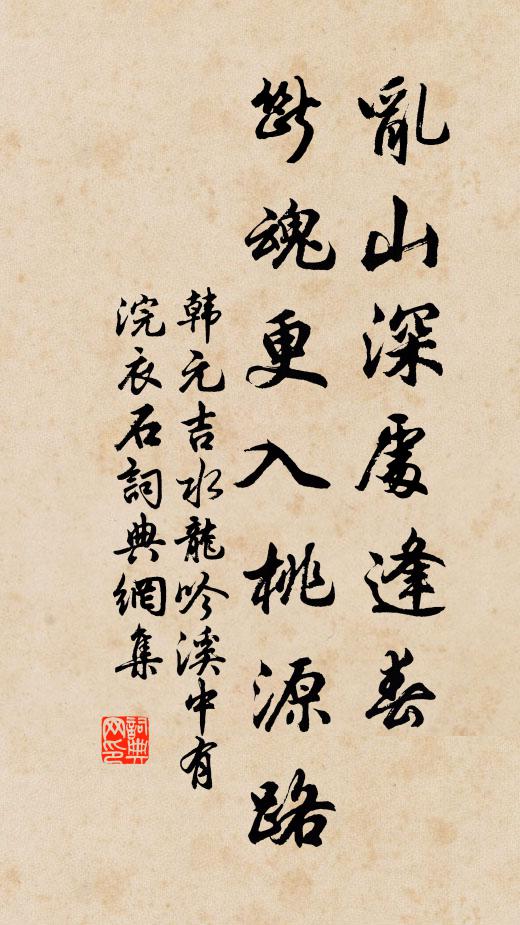 亂山深處逢春
斷魂更入桃源路
韩元吉水龍吟溪中有
浣衣石詞典網集
詞典网印